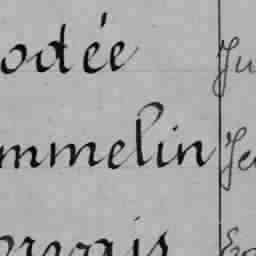 odée Ju
mmelin Je
ervais